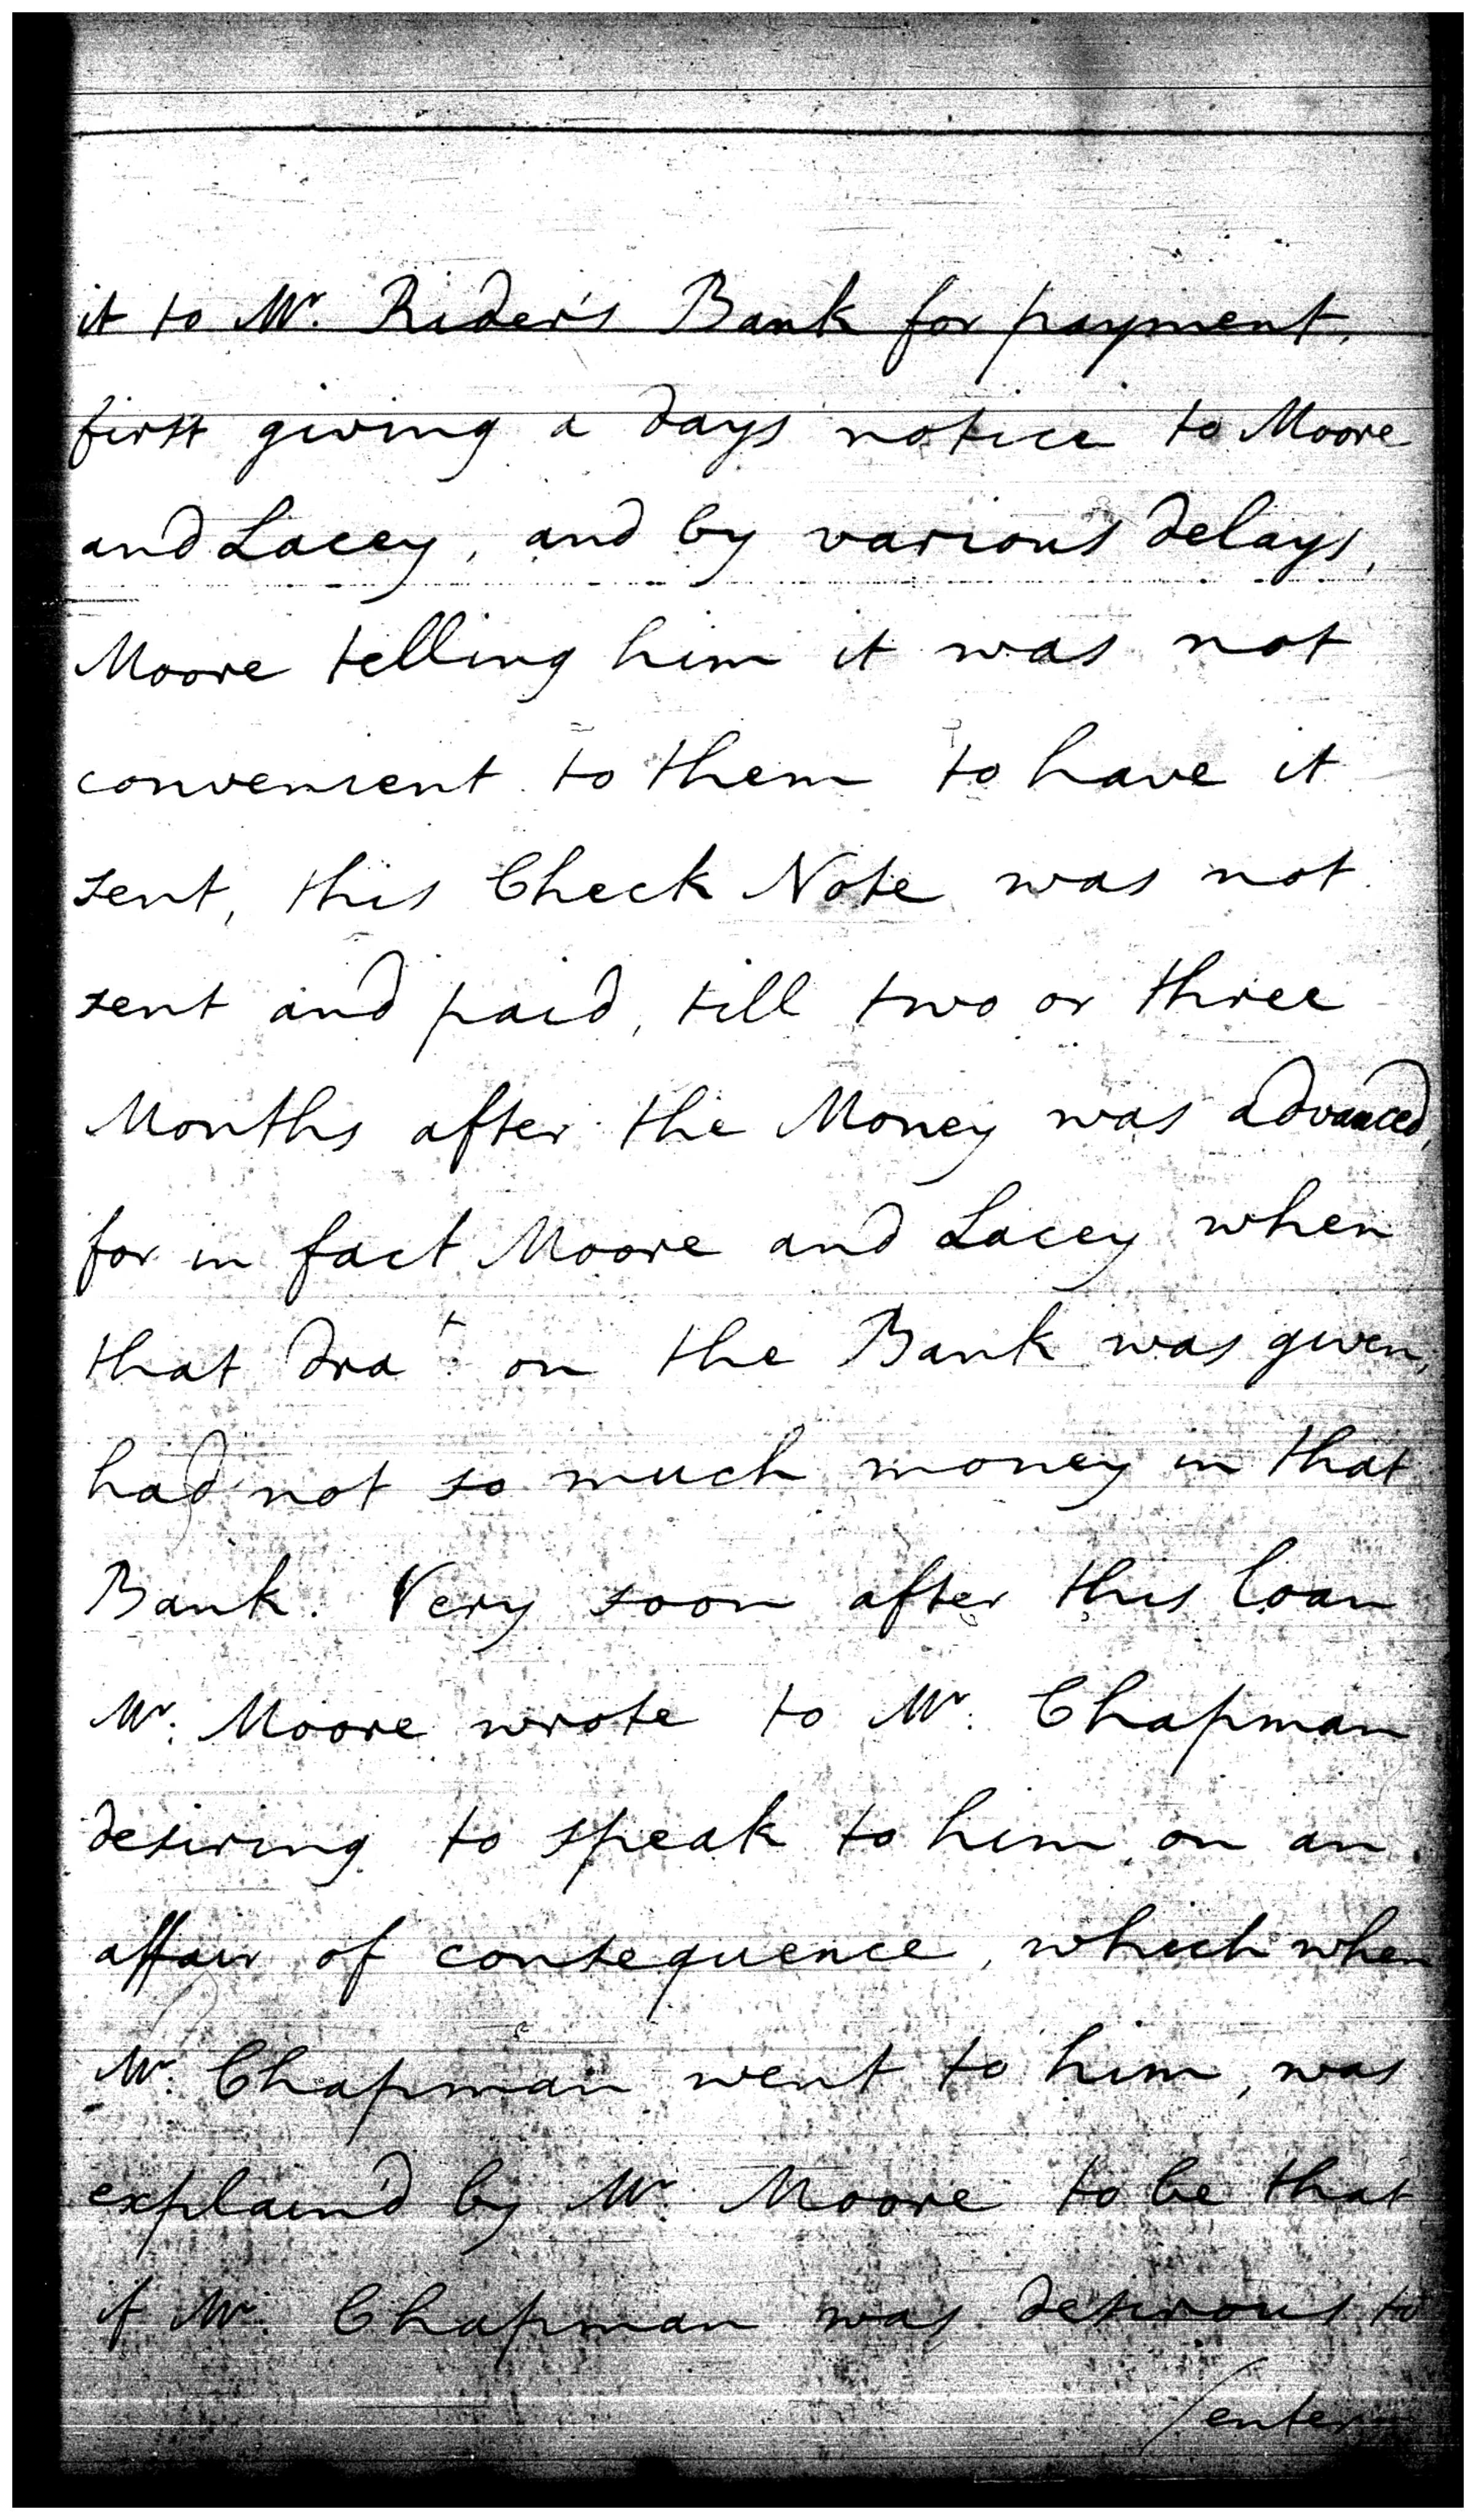 it to Mr. Rider's Bank for payment,
first giving a days notice to Moore
and Lacey, and by various delays,
Moore telling him it was not
convenient to them to have it
sent, this Check Note was not
sent and paid, till two or three
Months after the Money was advanced,
for in fact Moore and Lacey when
that dra.t on the Bank was given,
had not so much money in that
Bank. Very soon after this loan
Mr. Moore wrote to Mr. Chapman
desiring to speak to him on an
affair of consequence, which when
Mr. Chapman went to him, was
explain'd by Mr. Moore to be that
if Mr. Chapman was desirous to
/enter